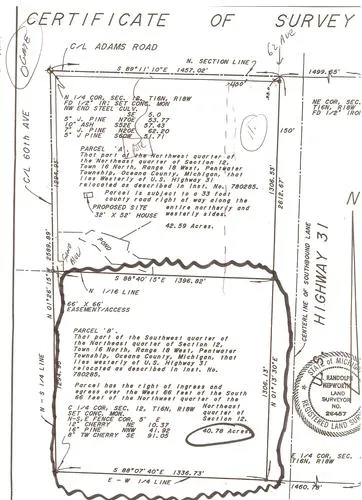 CERTIFICATE OF SURVEY
C/L ADAMS ROAD
62 AVE
N. SECTION LINE
S 89°11'10"E 1457.02'
1499.65'
400'
N 1/4 COR, SEC. 12, T16N, R18W
FD 1/2" IR: SET CONC. MON
NW END STEEL CULV.
SE 5.0
5" J. PINE N70E 53.77
10" ASH S52E 57.43
7" J. PINE N20E 62.20
5" J. PINE S60W 51.71
NE COR, SEC.
T16N, R18W
FD 1/2" IRO
150'
C/L 60TH AVE
PARCEL 'A'.
That part of the Northwest quarter of
the Northeast quarter of Section 12,
Town 16 North, Range 18 West, Pentwater
Township, Oceana County, Michigan, that
lies Westerly of U.S. Highway 31
relocated as described in Inst. No. 780285.
Parcel is subject to a 33 foot
county road right of way along the
entire northerly and
westerly sides.
PROPOSED SITE
32' X 52' HOUSE
42.59 Acres.
1306.53'
2612.67'
2589.89'
POND
CENTERLINE OF SOUTHBOUND LANE
HIGHWAY 31
N
S 88°40'15"E 1396.82'
N 1/16 LINE
66' X 66'
EASEMENT/ACCESS
N 01°26'15"E
N-S 1/4 LINE
PARCEL 'B'.
That part of the Southwest quarter of
the Northeast quarter of Section 12,
Town 16 North, Range 18 West, Pentwater
Township, Oceana County, Michigan, that
lies westerly of U.S. Highway 31
relocated as described in Inst. No.
780285.
Parcel has the right of ingress and
egress over the West 66 feet of the South
66 feet of the Northwest quarter of the
Northeast
quarter of
Section 12.
40.78 Acres
C 1/4 COR, SEC. 12, T16N, R18W
SET CONC. MON.
N-S,E FENCE COR. 5' E
12" CHERRY NE 10.37
16" PINE NNW 41.92
8" TW CHERRY SE 91.05
N 01°13'30"E
1306.13'
STATE OF MICHIGAN
RANDOLPH
REPKOWIECZ
LAND
SURVEYOR
NO.
26457
REGISTERED LAND SURVEYOR
E 1/4 COR, SEC.
T16N, R18W
S 88°07'40"E 1336.73'
E-W 1/4 LINE
1460.78'